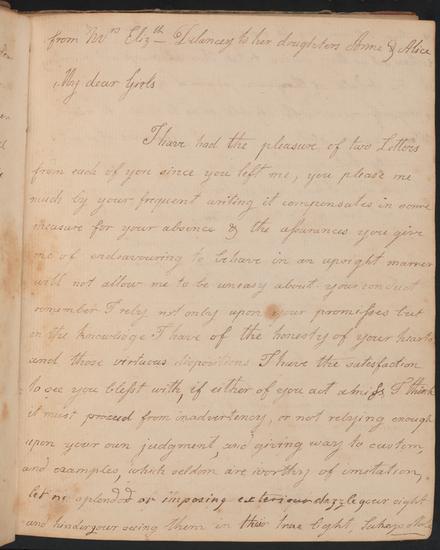 from Mrs Elizth Delancey to her daughters Anne & Alice
My dear Girls
I have had the pleasure of two Letters
from each of you since you left me, you please me
much by your frequent writing it compensates in some
measure for your absence & the assurances you give
me of endeavouring to behave in an upright manner
will not allow me to be uneasy about your conduct
remember I rely not only upon your promisses but
on the knowledge I have of the honesty of your hearts
and those virtuous dispositions I have the satisfaction
to see you blest with, if either of you act amiss I think
it must proceed from inadvertency, or not relying enough
upon your own judgment, and giving way to custom,
and examples, which seldom are worthy of imitation,
let no splendid or imposing exteriour dazzle your sight
and hinder your seeing them in their true light,